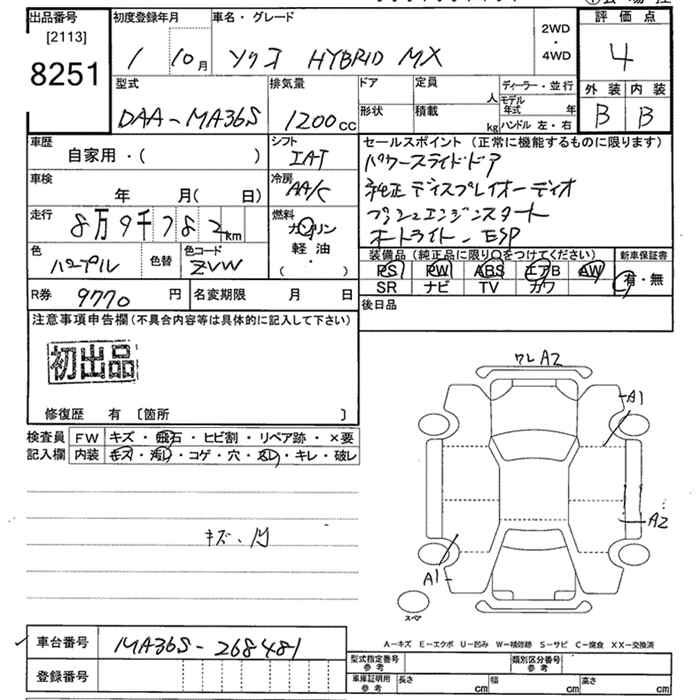 出品番号 初度登録年月 車名・グレード 評価点
[2113]
8251
1 10月 ソリオ HYBRID MX 2WD・4WD 4
型式 排気量 ドア 定員 人 ディーラー・並行 外装 内装
DAA-MA36S 1200cc 形状 積載 kg モデル年式 年 ハンドル 左・右 B B
車歴 自家用・( ) シフト IAT セールスポイント (正常に機能するものに限ります)
パワースライドドア
車検 年 月( 日) 冷房 AA/C 純正ディスプレイオーディオ
走行 8万9千782km 燃料 ガソリン・軽油・( ) プッシュエンジンスタート
オートライト、ESP
色 パープル 色替 色コード ZVW 装備品 (純正品に限り○をつけてください) 新車保証書
PS PW ABS エアB AW 有・無
R券 9770円 名変期限 月 日 SR ナビ TV カワ
注意事項申告欄(不具合内容等は具体的に記入して下さい) 後日品
初出品
ワレ A2
A1
修復歴 有 [箇所 ]
検査員 FW キズ・飛石・ヒビ割・リペア跡・×要
記入欄 内装 キズ・汚レ・コゲ・穴・スレ・キレ・破レ
A2
キズ、凹
A1
スペア
車台番号 MA36S-268481 A-キズ E-エクボ U-凹み W-補修跡 S-サビ C-腐食 XX-交換済
登録番号 型式指定番号 参考 類別区分番号 参考
車庫証明用 参考 長さ cm 幅 cm 高さ cm